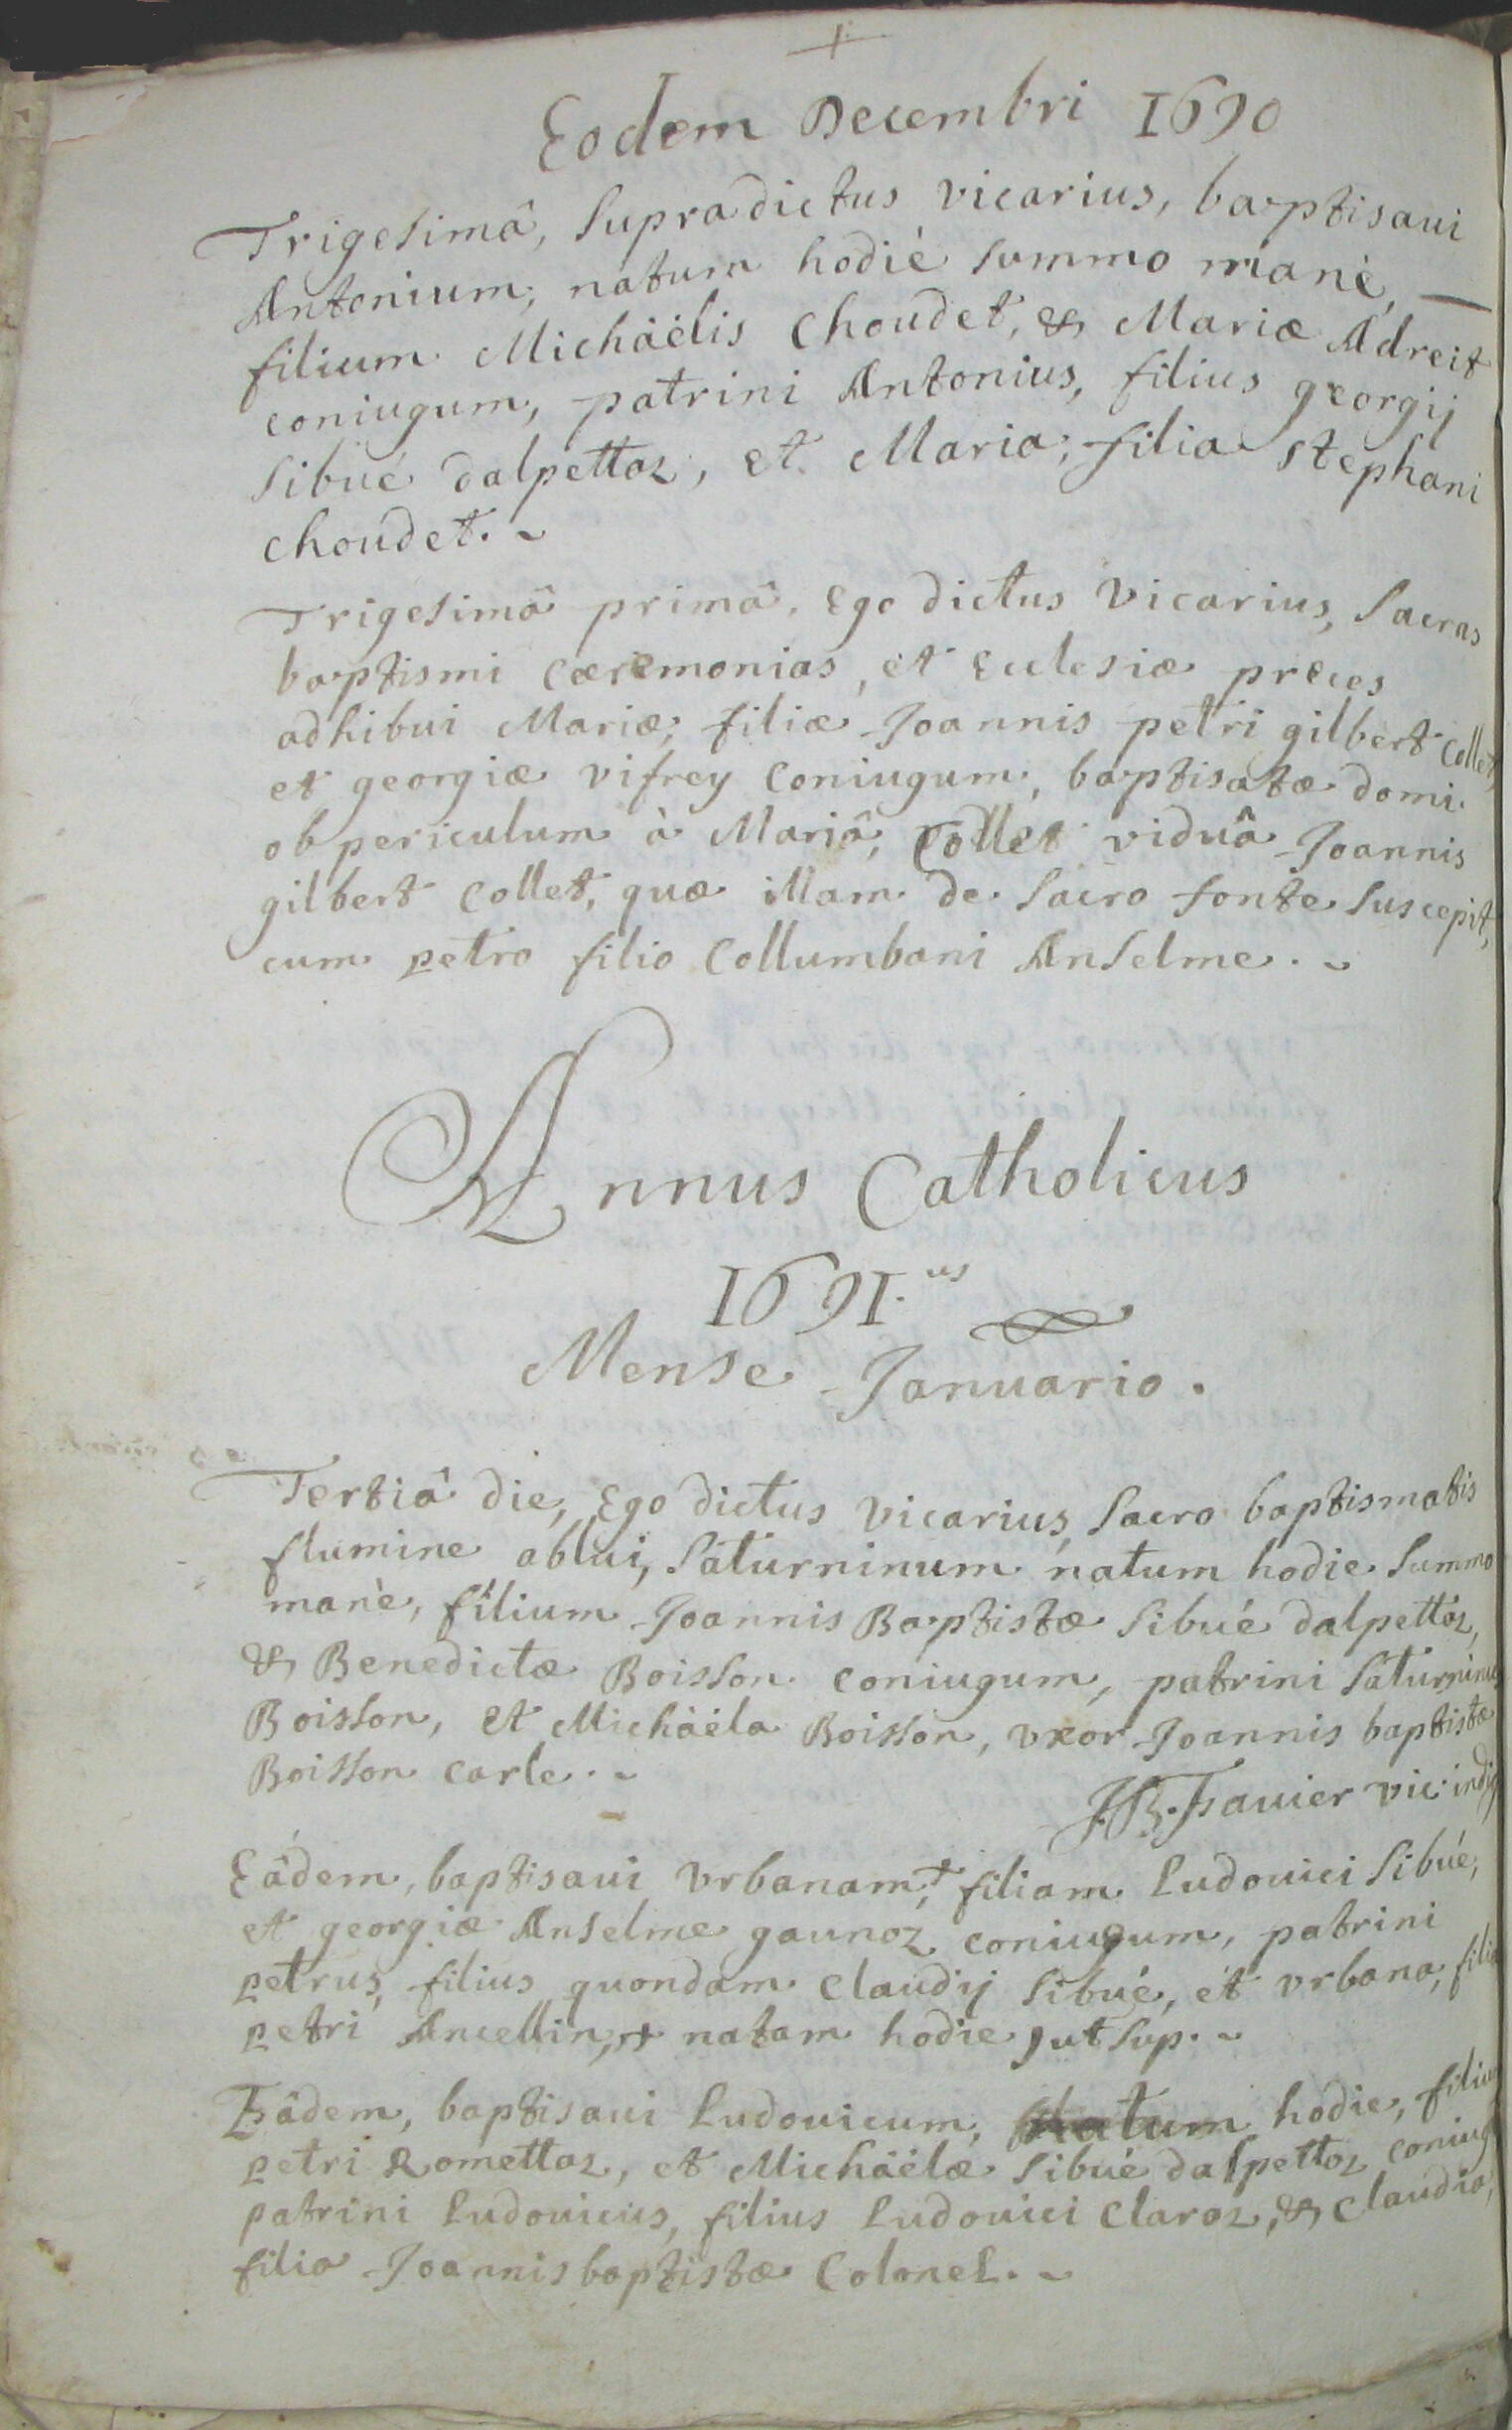 +
Eodem Decembri 1690
Trigesimâ, supradictus vicarius, baptisaui
Antonium, natum hodiè summo manè, —
filium Michäélis Choudet, & Mariæ Adreit
coniugum, patrini Antonius, filius georgij
Sibué dalpettaz, et Maria, filia Stephani
Choudet. ~
Trigesimâ primâ, Ego dictus Vicarius, Sacras
baptismi cæremonias, et Ecclesiæ preces
adhibui Mariæ, filiæ Joannis petri gilbert Collet,
et georgiæ vifrey coniugum, baptisatæ domi
ob periculum à Mariâ, Collet viduâ Joannis
gilbert Collet, quæ illam de sacro fonte suscepit,
cum petro filio Collumbani Anselme. ~
Annus Catholicus
1691.us
Mense Januario.
Tertiâ die, Ego dictus Vicarius, Sacro baptismatis
flumine ablui, Saturninum natum hodie summo
manè, filium Joannis Baptistæ Sibué dalpettaz,
& Benedictæ Boisson coniugum, patrini Saturninus
Boisson, et Michäéla Boisson, vxor Joannis baptistæ
Boisson Carle. ~
JB. Fauier vic: indig
Eâdem, baptisaui Vrbanam,+ filiam Ludouici Sibué,
et georgiæ Anselme gaunoz coniugum, patrini
petrus, filius quondam Claudij Sibué, et vrbana, filia
petri Ancellin, + natam hodie, ut sup. ~
Eâdem, baptisaui Ludouicum, natum hodie, filium
petri Romettaz, et Michäélæ Sibué dalpettaz coniug
patrini Ludouicus, filius Ludouici Claraz, & Claudia,
filia Joannis baptistæ Colonel. ~